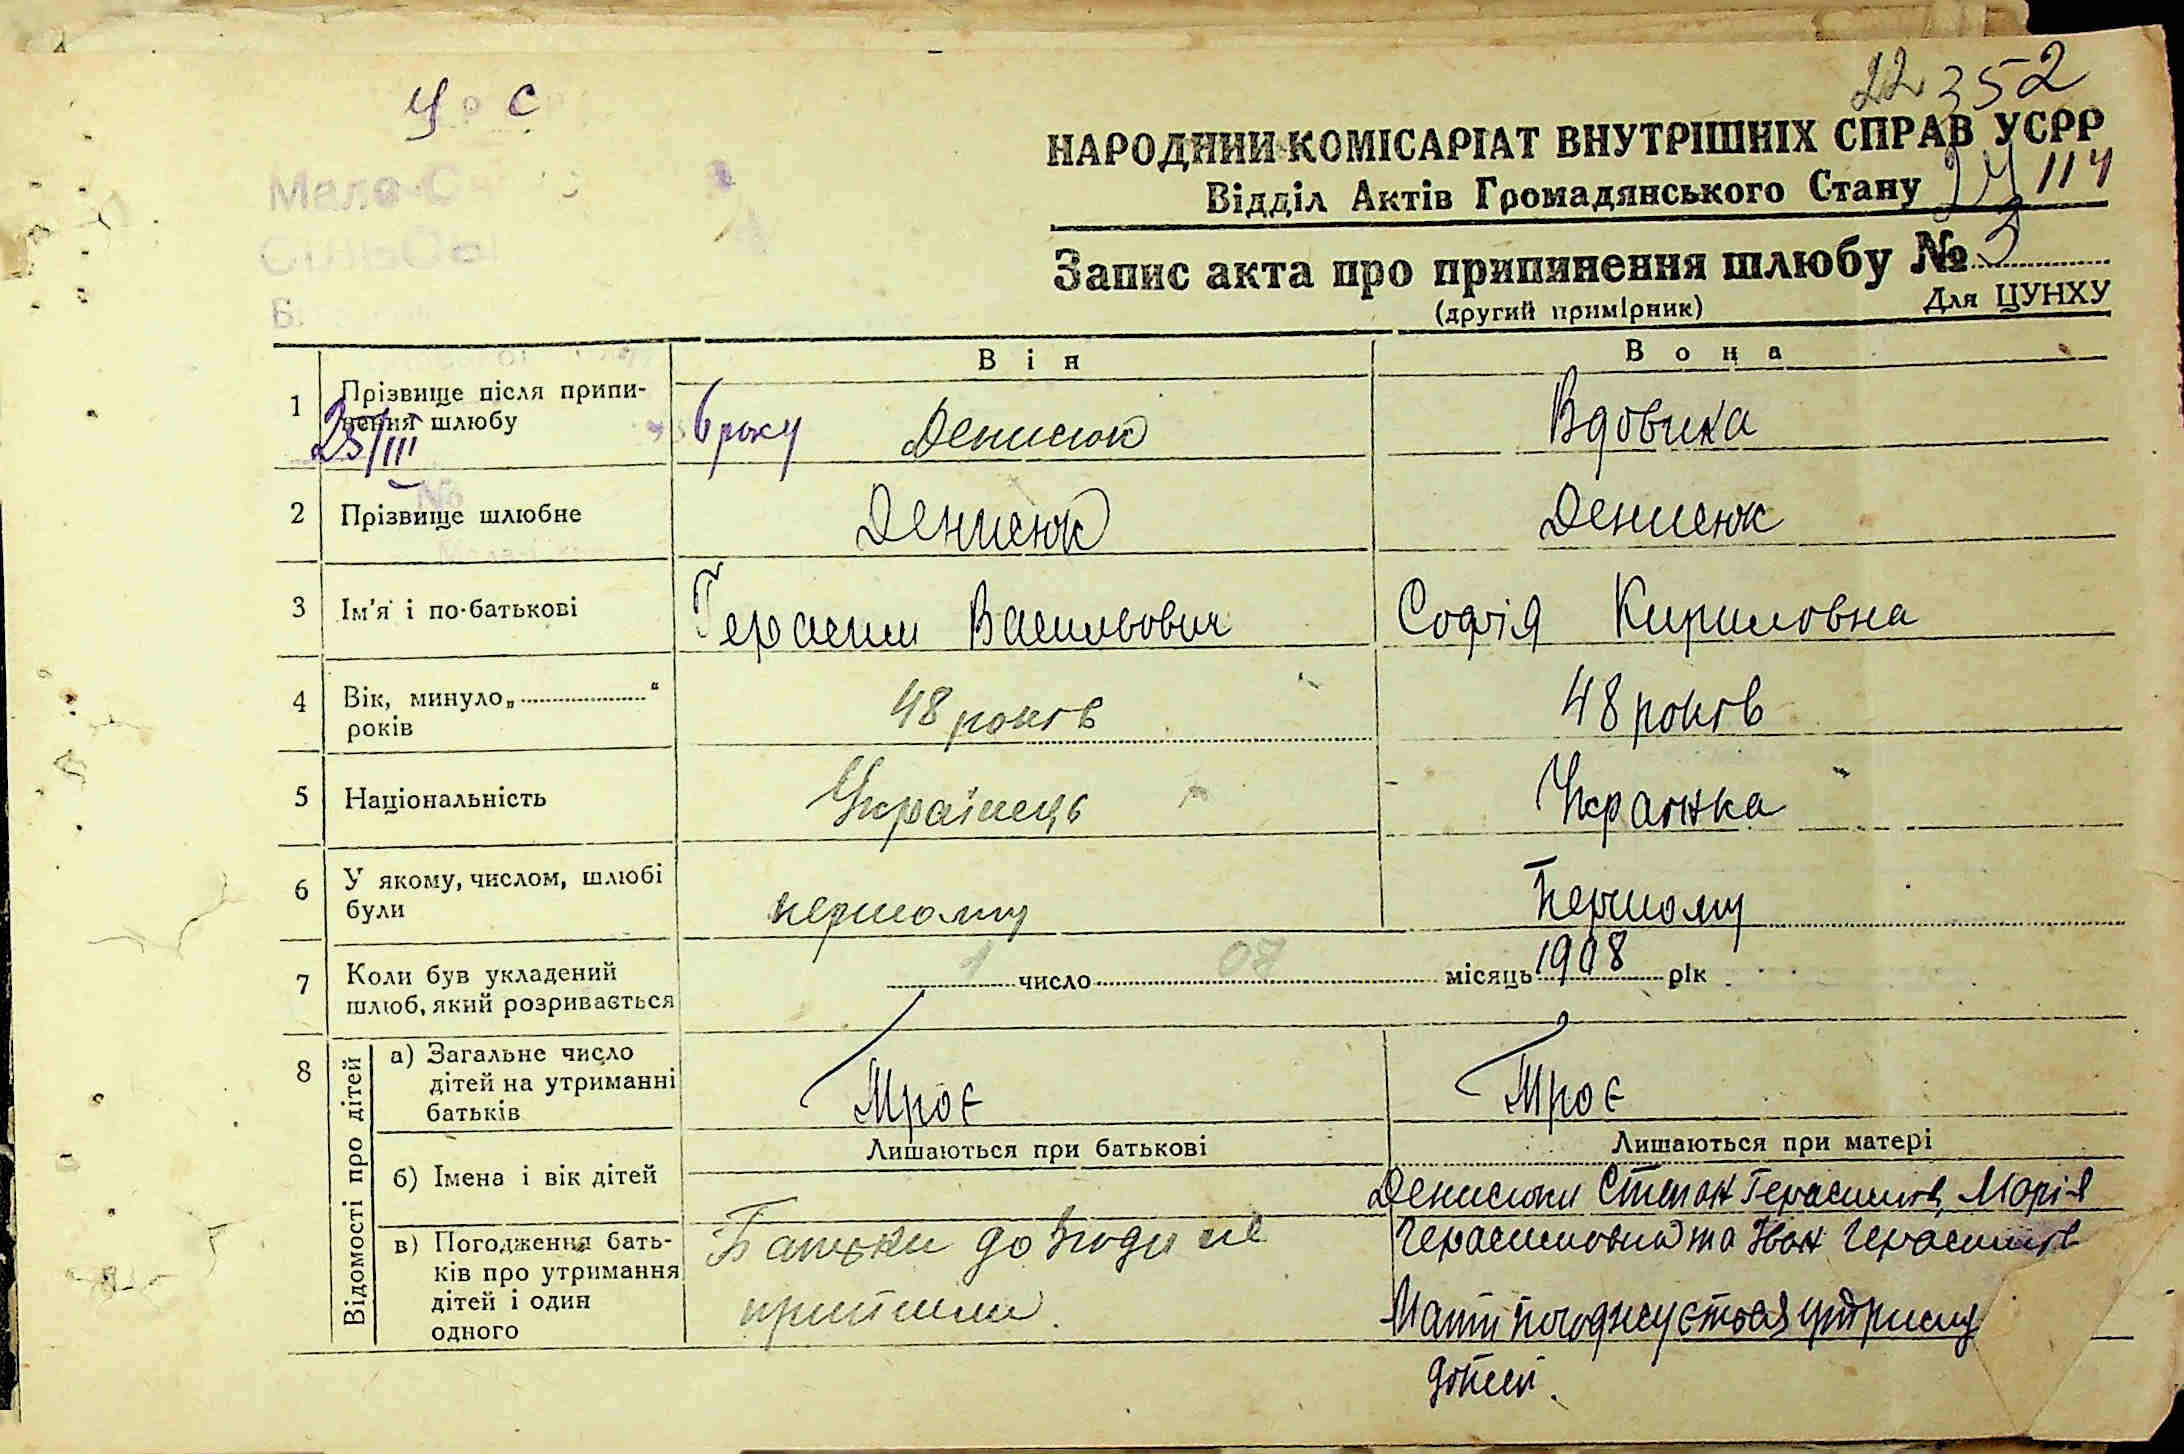 У С
22 352
НАРОДНИЙ КОМІСАРІАТ ВНУТРІШНІХ СПРАВ УСРР
Відділ Актів Громадянського Стану 24 114
Запис акта про припинення шлюбу № 3
(другий примірник) Для ЦУНХУ
Він Вона
1 Прізвище після припинення шлюбу Денисюк Вдовика
25/III 6 року
2 Прізвище шлюбне Денисюк Денисюк
3 Ім'я і по-батькові Герасим Васильович Софія Кириловна
4 Вік, минуло „ “ років 48 років 48 років
5 Національність Українець Українка
6 У якому, числом, шлюбі були першому Першому
7 Коли був укладений шлюб, який розривається 1 число 08 місяць 1908 рік
8 Відомості про дітей
а) Загальне число дітей на утриманні батьків Троє Троє
Лишаються при батькові Лишаються при матері
б) Імена і вік дітей Денисюки Степан Герасимів, Марія
Герасимовна та Іван Герасимів
в) Погодження батьків про утримання дітей і один одного Батьки до згоди не
прийшли. Мати погоджується
дітей.